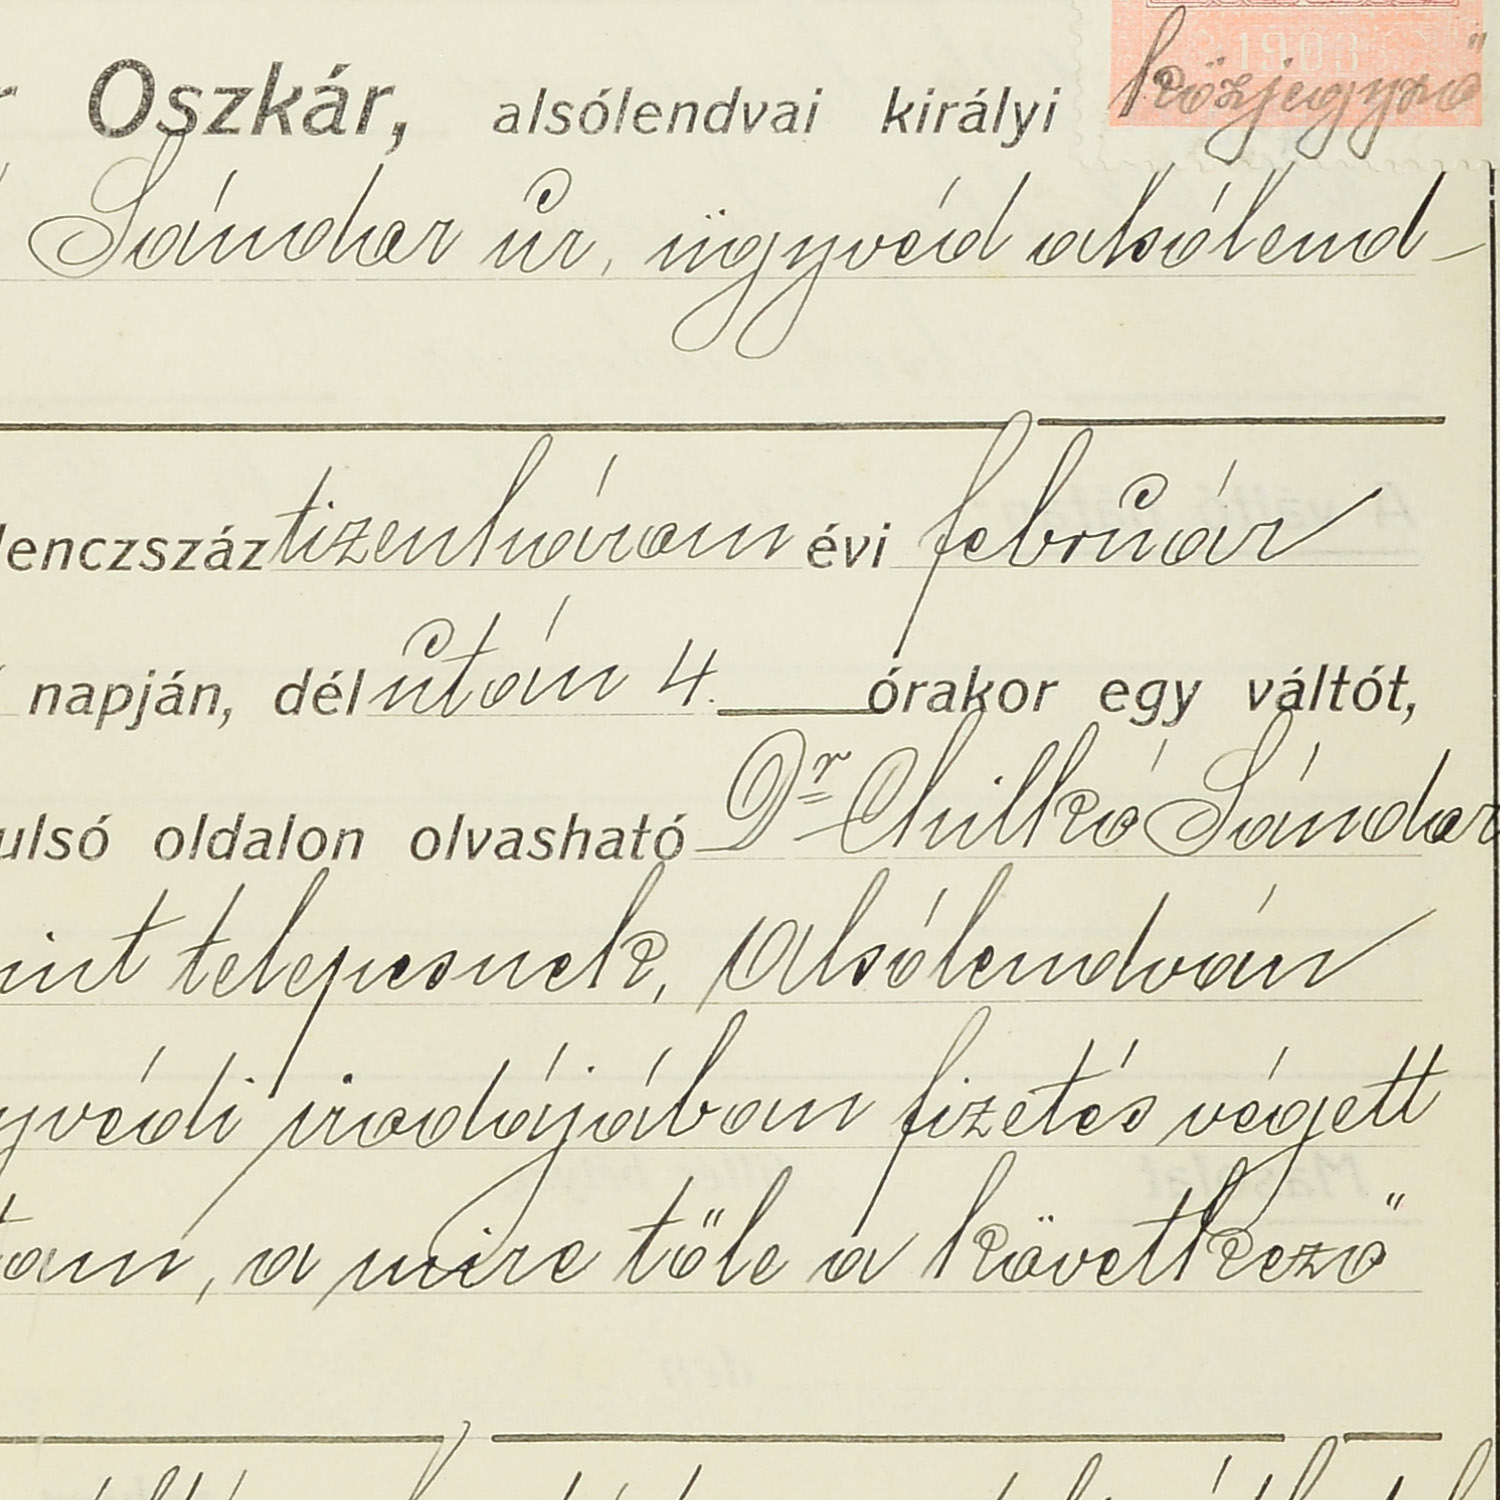 Oszkár, alsólendvai királyi közjegyző
1903
Sándor úr, ügyvéd alsólend-
lenczszáz tizenhárom évi február
napján, délután 4. órakor egy váltót,
ulsó oldalon olvasható Dr Chilkó Sándor
mint telepesnek, Alsólendván
yvédi irodájában fizetés végett
tam, a mire tőle a következő